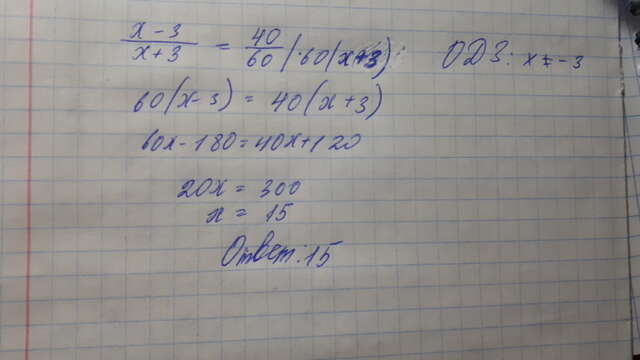 x-3/x+3 = 40/60 | ·60(x+3); ОДЗ: x≠-3
60(x-3) = 40(x+3)
60x-180=40x+120
20x=300
x=15
Ответ: 15